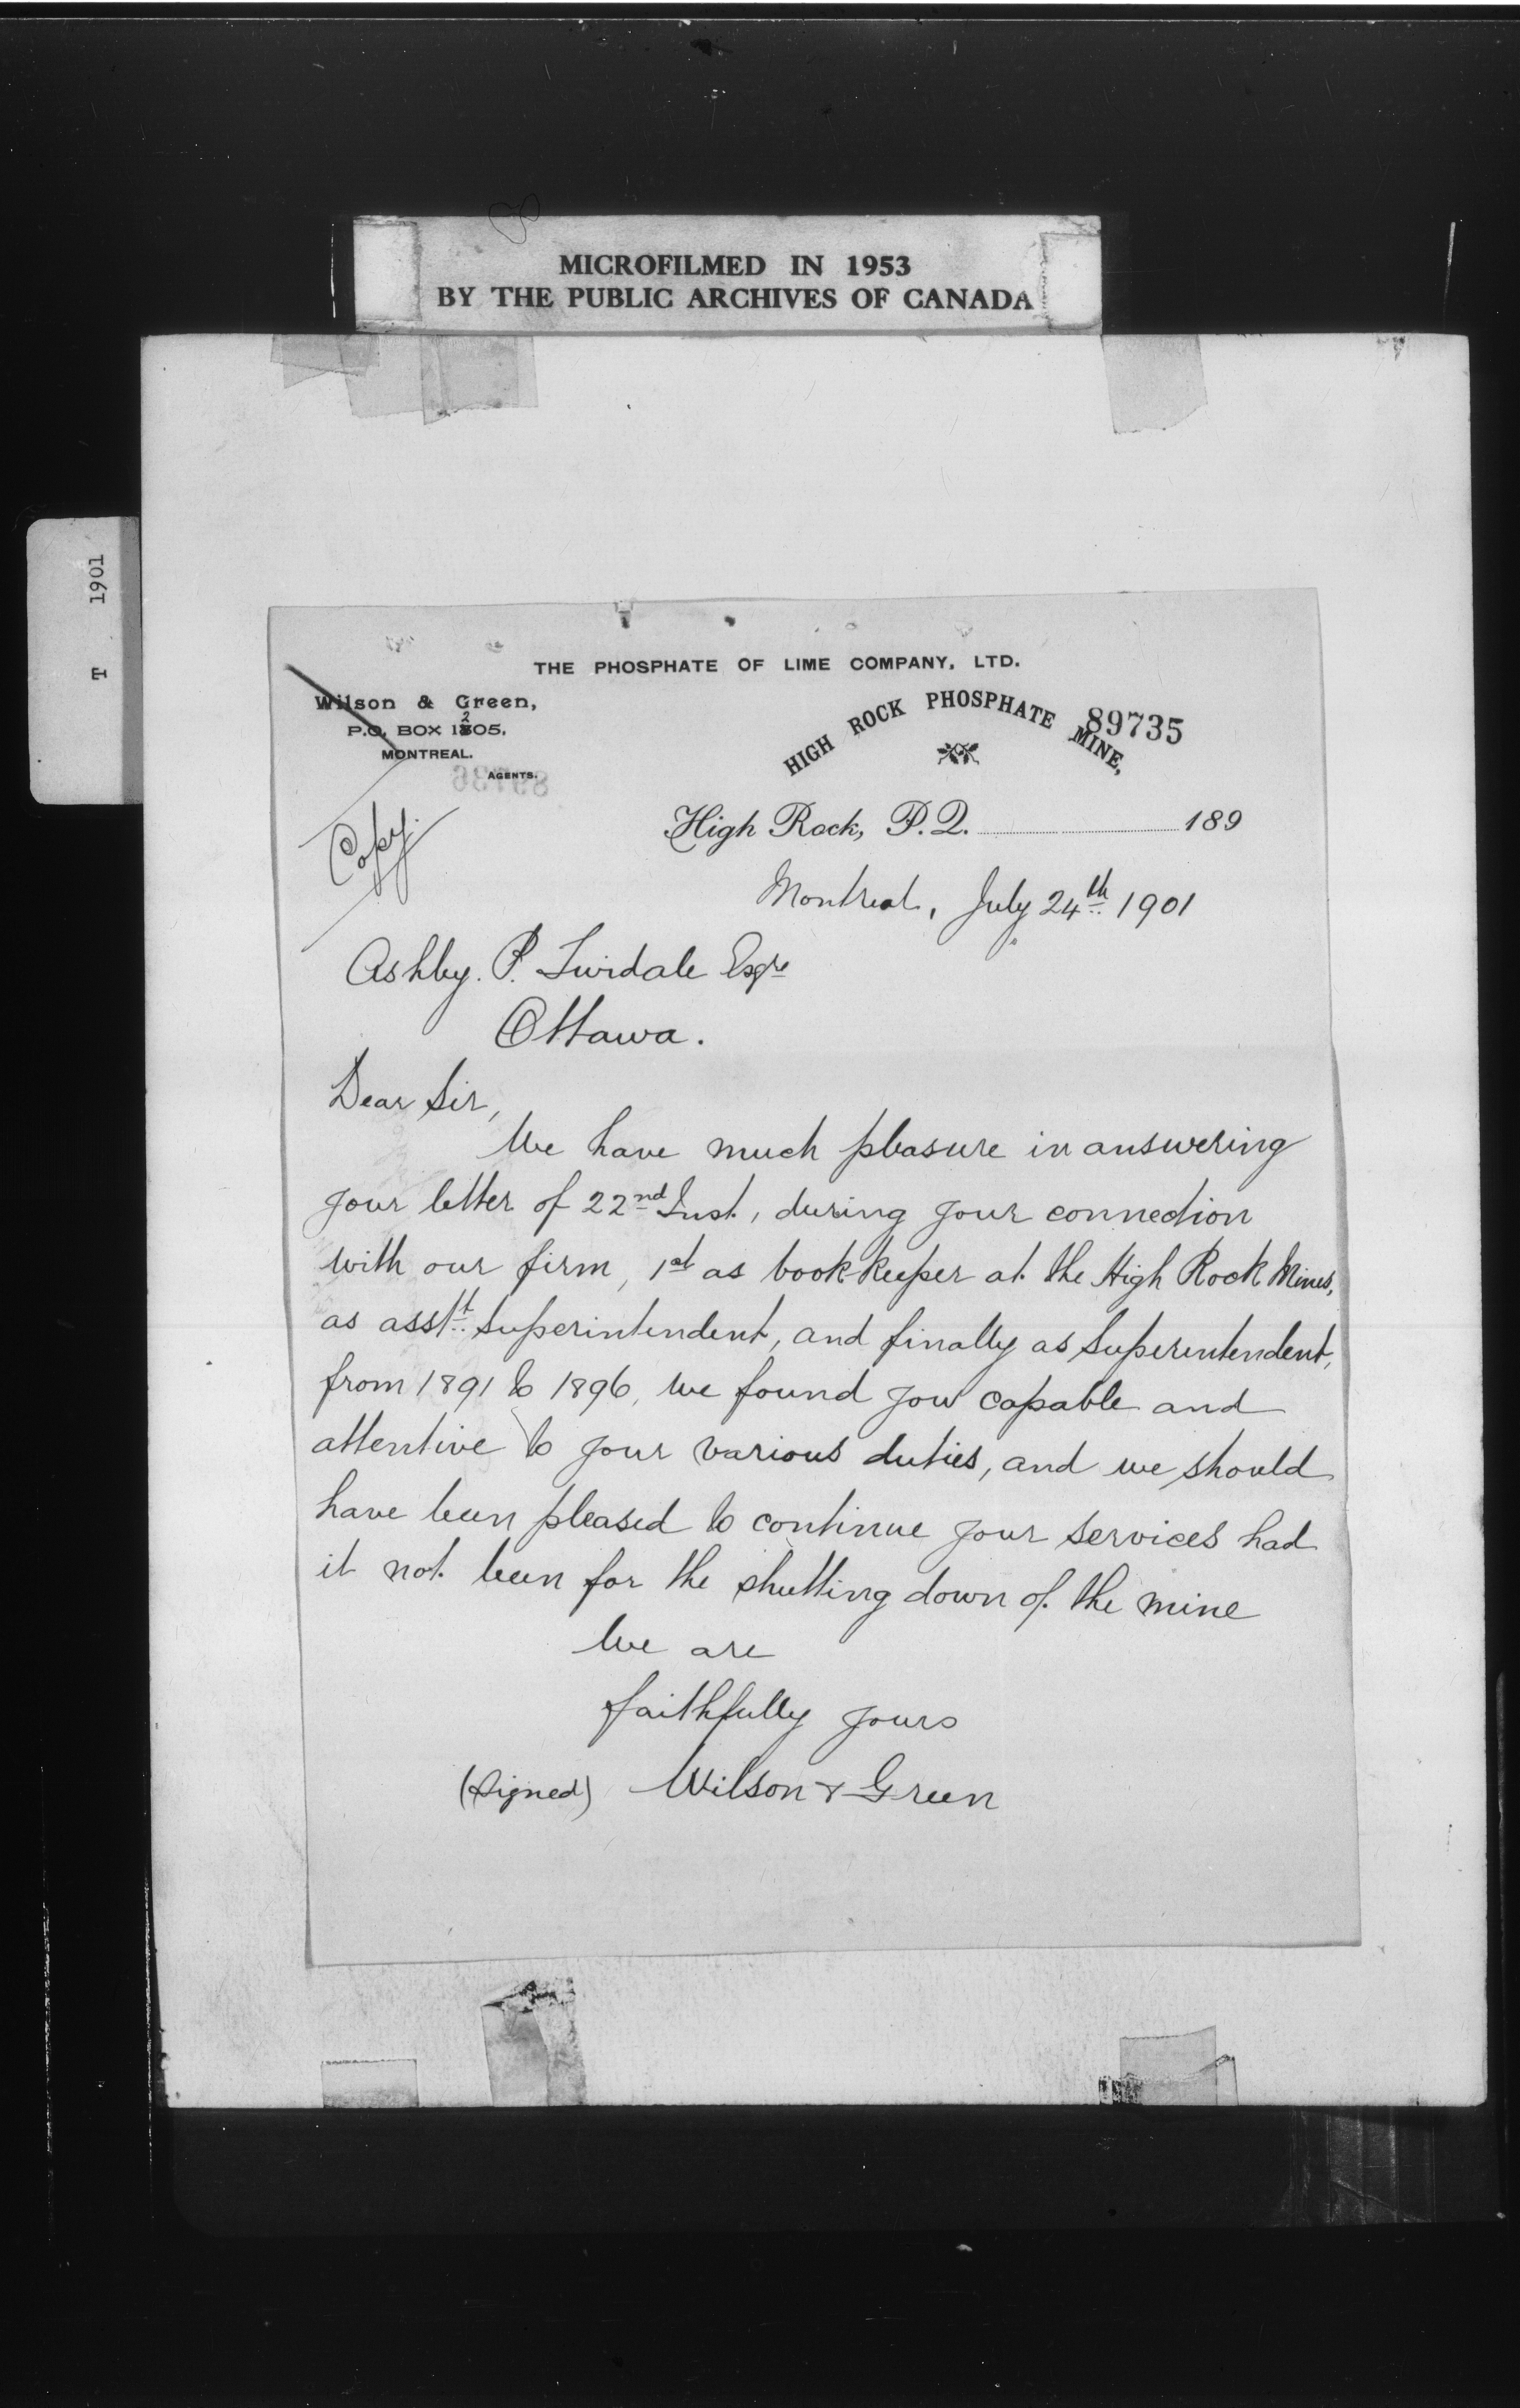 MICROFILMED IN 1953
BY THE PUBLIC ARCHIVES OF CANADA
T 1901
THE PHOSPHATE OF LIME COMPANY, LTD.
Wilson & Green,
P.O. BOX 1205,
MONTREAL.
AGENTS.
HIGH ROCK PHOSPHATE MINE,
89735
High Rock, P.Q. 189
Copy.
Montreal, July 24th 1901
Ashby. P. Esqre
Ottawa.
Dear Sir,
We have much pleasure in answering
your letter of 22nd Inst., during your connection
with our firm, 1st as book-keeper at the High Rock Mines,
as asstt. Superintendent, and finally as Superintendent,
from 1891 to 1896, we found you capable and
attentive to your various duties, and we should
have been pleased to continue your services had
it not been for the shutting down of the mine
We are
faithfully yours
(Signed) Wilson & Green